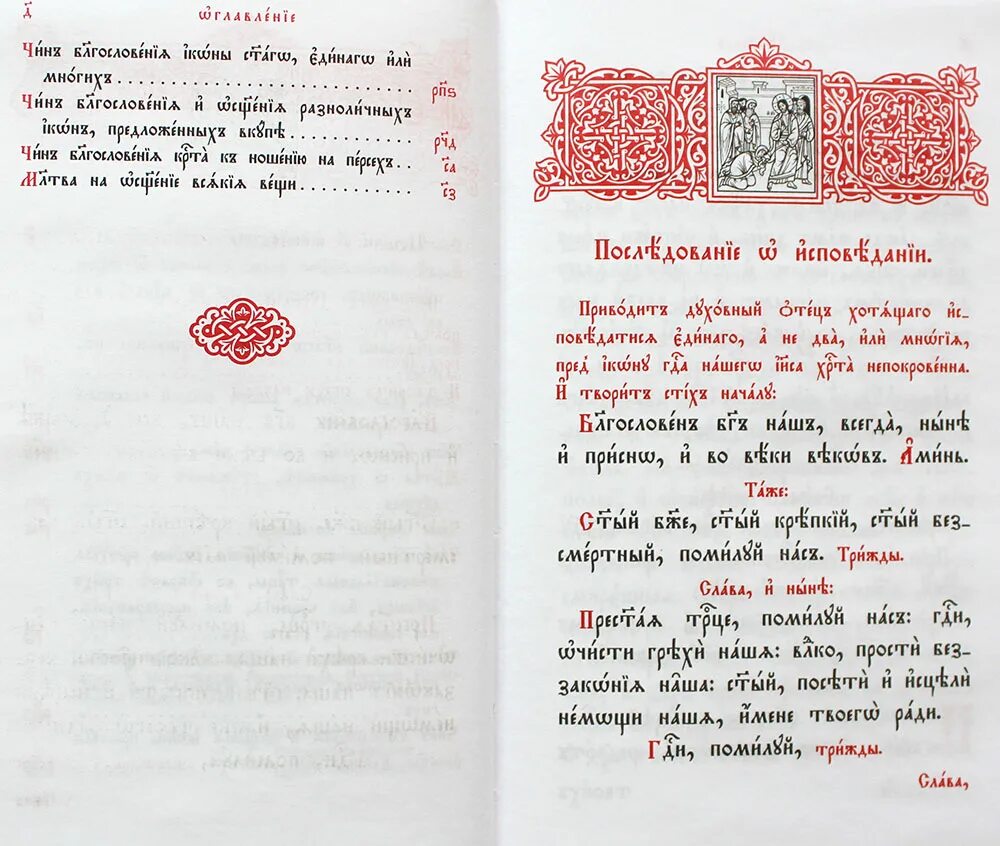 д҃
Ѡ҆главле́нїе
Чи́нъ бл҃гослове́нїѧ і҆кѡ́ны ст҃а́гѡ, є҆ди́нагѡ и҆лѝ
мно́гихъ
рп҃ѕ
Чи́нъ бл҃гослове́нїѧ и҆ ѡ҆сщ҃е́нїѧ разноли́чныхъ
і҆кѡ́нъ, предложе́нныхъ вкꙋ́пѣ
рч҃д
Чи́нъ бл҃гослове́нїѧ крⷭ҇та̀ къ ноше́нїю на пе́рсехъ
с҃а
Мл҃тва на ѡ҆сщ҃е́нїе всѧ́кїѧ ве́щи
с҃з
Послѣ́дованїе ѡ҆ и҆сповѣ́данїи.
Приво́дитъ дꙋхо́вный ѻ҆те́цъ хотѧ́щаго и҆с-
повѣ́датисѧ є҆ди́наго, а҆ не два̀, и҆лѝ мнѡ́гїѧ,
пред̾ і҆кѡ́нꙋ гдⷭ҇а на́шегѡ і҆и҃са хрⷭ҇та̀ непокрове́нна.
И҆ твори́тъ сті́хъ нача́лꙋ:
Бл҃гослове́нъ бг҃ъ на́шъ, всегда̀, ны́нѣ
и҆ при́снѡ, и҆ во вѣ́ки вѣкѡ́въ. А҆ми́нь.
Та́же:
Ст҃ы́й бж҃е, ст҃ы́й крѣ́пкїй, ст҃ы́й без-
сме́ртный, поми́лꙋй на́съ. Три́жды.
Сла́ва, и҆ ны́нѣ:
Прест҃а́ѧ трⷪ҇це, поми́лꙋй на́съ: гдⷭ҇и,
ѡ҆чи́сти грѣхѝ на́шѧ: влⷣко, простѝ без-
закѡ́нїѧ на̑ша: ст҃ы́й, посѣтѝ и҆ и҆сцѣлѝ
не́мѡщи на́шѧ, и҆́мене твоегѡ̀ ра́ди.
Гдⷭ҇и, поми́лꙋй, три́жды.
Сла́ва,